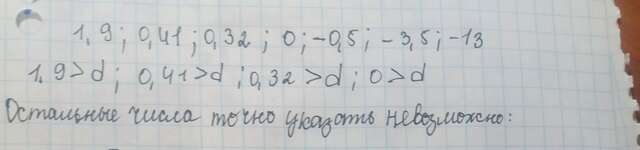 1. 9; 0,41; 0,32; 0; -0,5; -3,5; -13
1. 9>d; 0,41>d; 0,32>d; 0>d
Остальные числа точно указать невозможно: